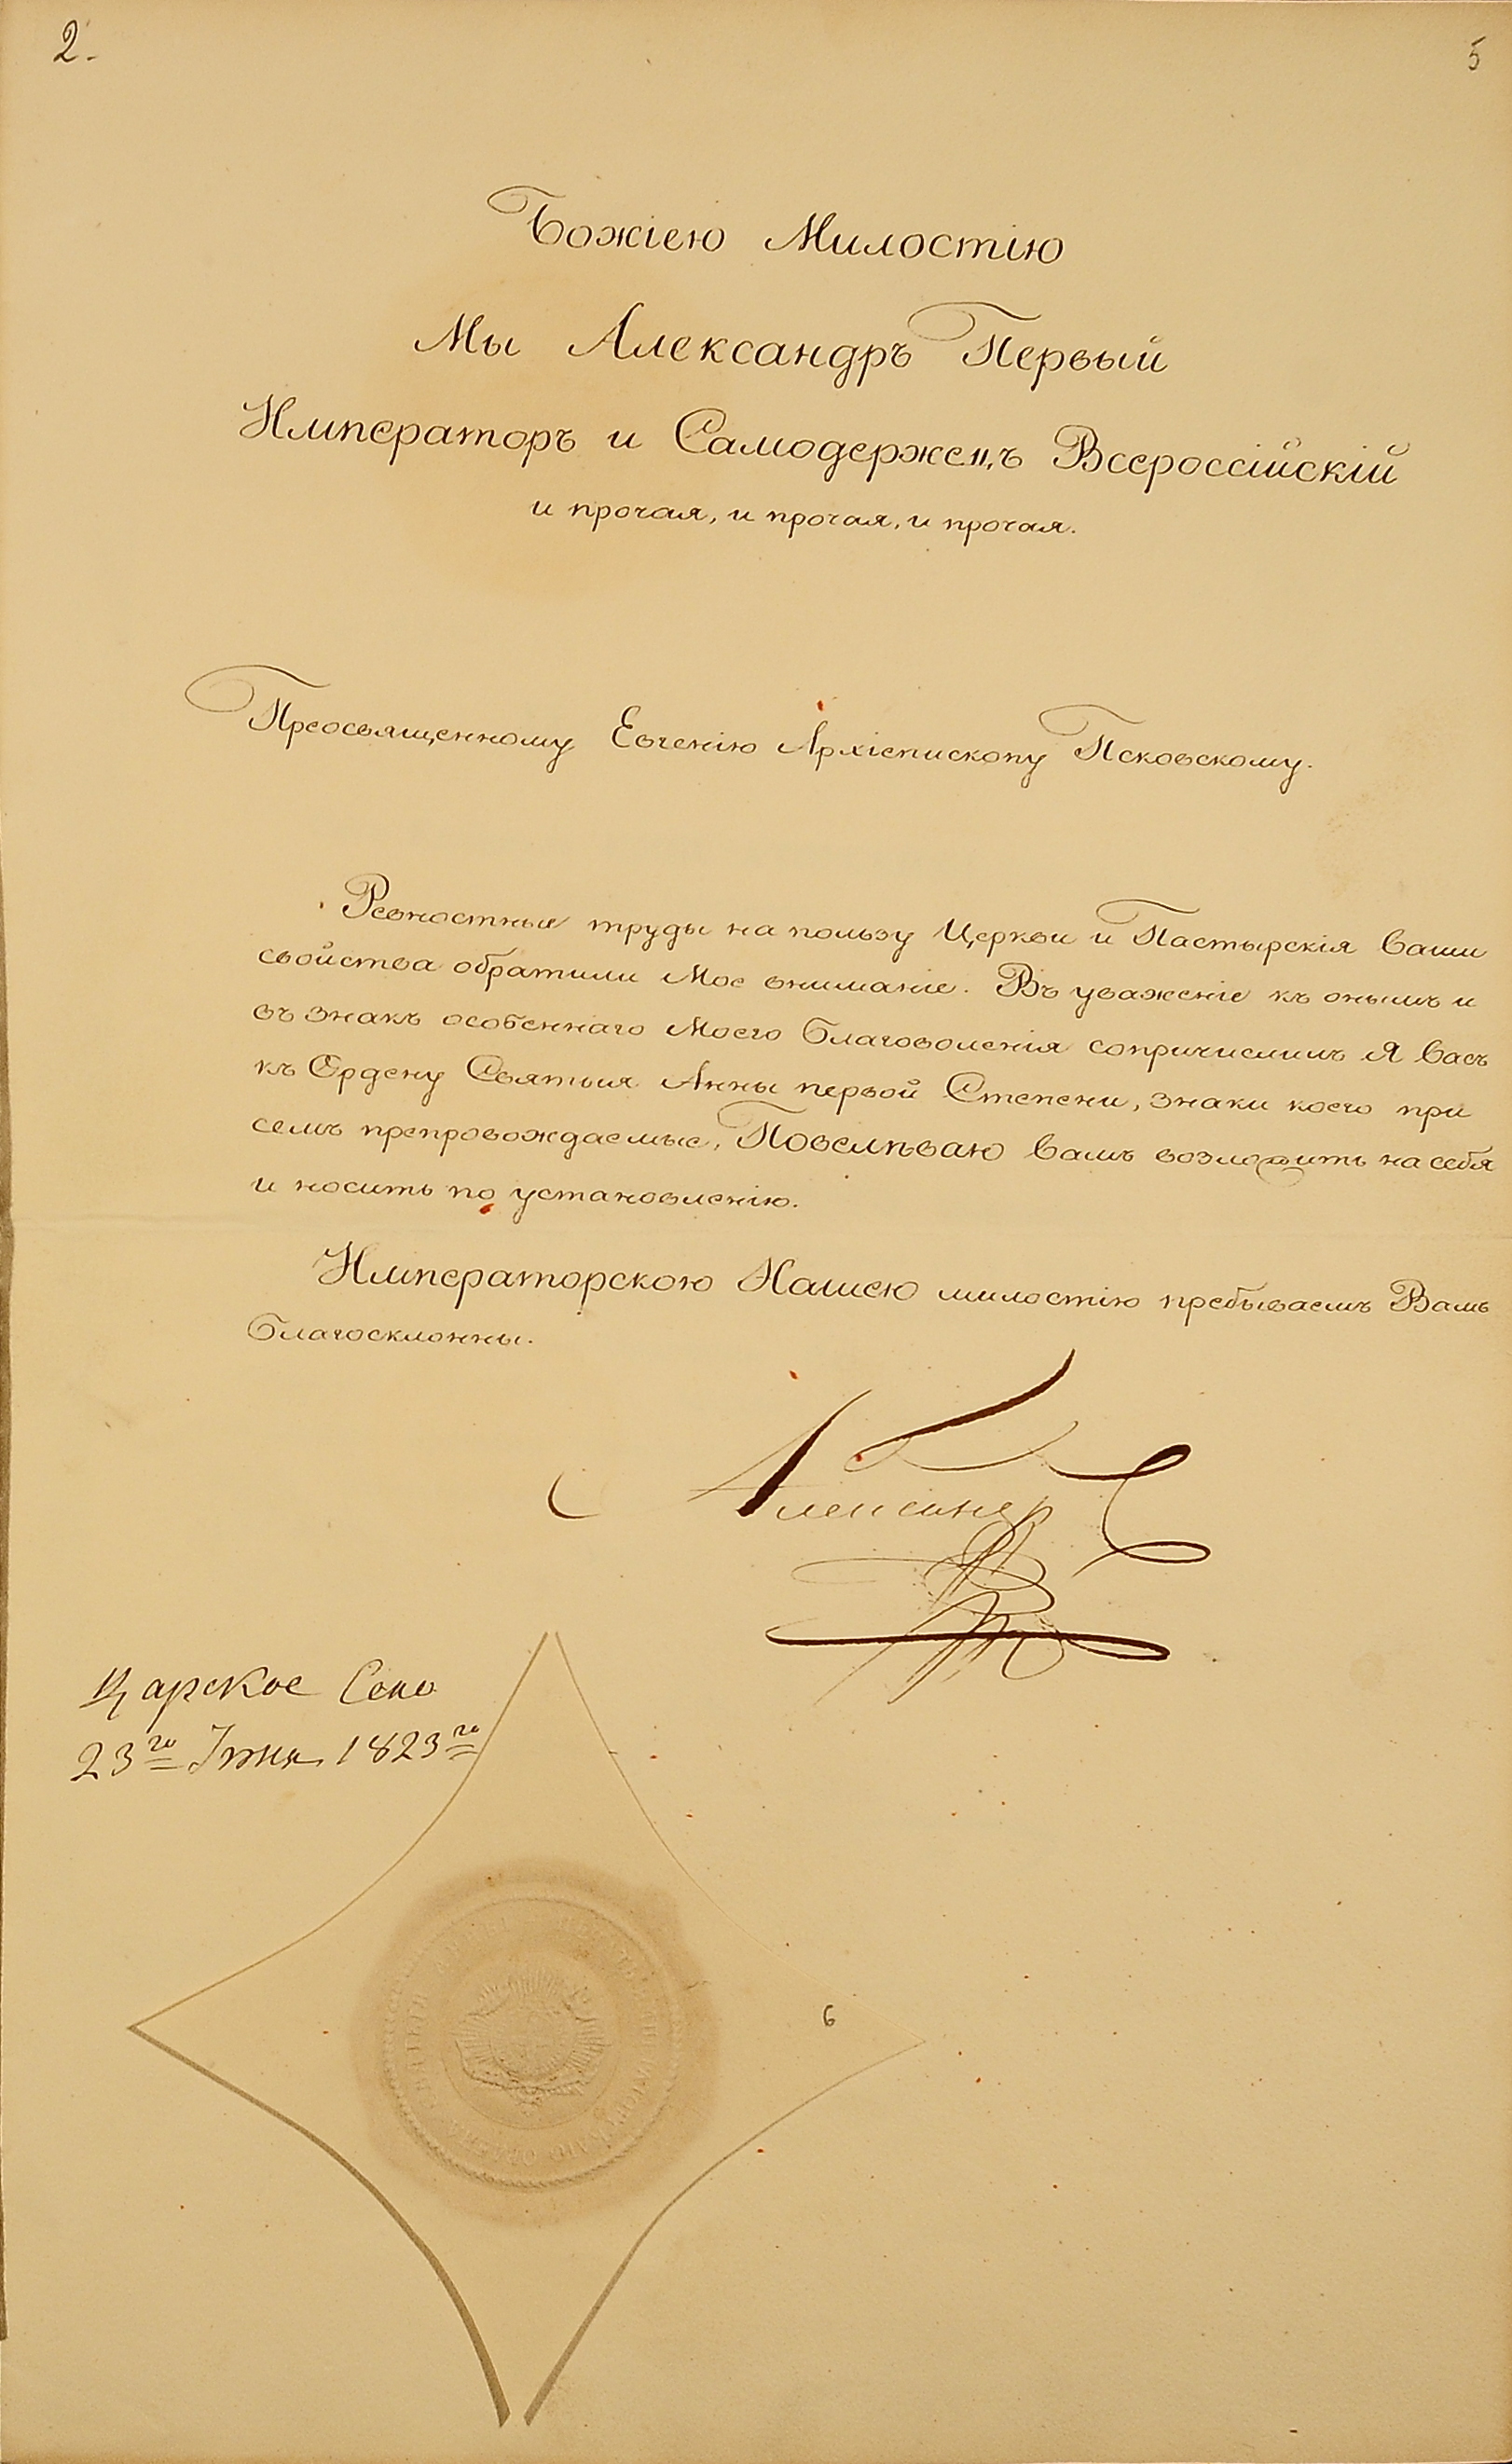 2.
5
Божіею Милостію
Мы Александръ Первый
Императоръ и Самодержецъ Всероссійскій
и прочая, и прочая, и прочая.
Преосвященному Евгенію Архіепископу Псковскому.
Ревностные труды на пользу Церкви и Пастырскія Ваши
свойства обратили Мое вниманіе. Въ уваженіе къ онымъ и
въ знакъ особеннаго Моего благоволенія сопричислилъ Я Васъ
къ Ордену Святыя Анны первой Степени, знаки коего при
семъ препровождаемые, Повелѣваю Вамъ возложить на себя
и носить по установленію.
Императорскою Нашею милостію пребываемъ Вамъ
благосклонны.
Александръ
Царское Село
23го Іюня 1823го
6